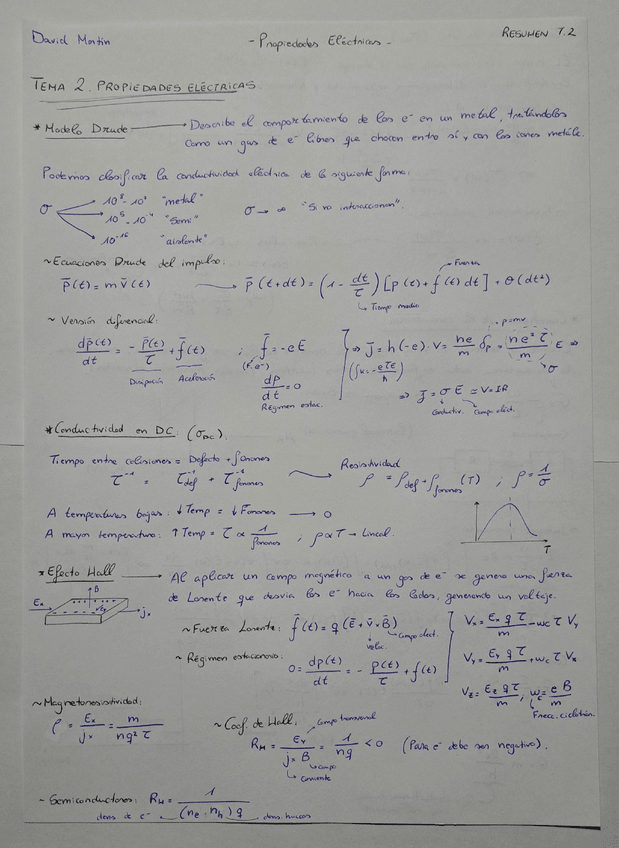 David Martín
- Propiedades Eléctricas -
RESUMEN T.2
TEMA 2. PROPIEDADES ELÉCTRICAS.
* Modelo Drude → Describe el comportamiento de los e⁻ en un metal, tratándolos
como un gas de e⁻ libres que chocan entre sí y con los iones metálic.
Podemos clasificar la conductividad eléctrica de la siguiente forma:
10⁸ - 10⁴ "metal"
σ 10⁵ - 10⁻⁴ "Semi" σ → ∞ "Si no interaccionan".
10⁻¹⁶ "aislante"
~ Ecuaciones Drude del impulso: Fuerza
p̄(t) = m v̄(t) → p̄(t+dt) = (1 - dt/τ) [p(t) + f(t) dt] + θ(dt²)
Tiempo medio
~ Versión diferencial: p=mv
dp̄(t)/dt = - p̄(t)/τ + f̄(t) ; f̄ = -eE ⇒ j̄ = n(-e)·v = ne/m δp = (ne²τ/m) E ⇒
Disipación Aceleración (F. e⁻) σ
dp/dt = 0 ⇒ J = σ E ≡ V = IR
Régimen estac. Conductiv. Campo eléct.
* Conductividad en DC: (σDC).
Tiempo entre colisiones = Defecto + fonones Resistividad
τ⁻¹ = τ⁻¹def + τ⁻¹fonones → ρ = ρdef + ρfonones (T) ; ρ = 1/σ
A temperaturas bajas: ↓ Temp = ↓ Fonones → 0
A mayor temperatura: ↑ Temp = τ ∝ 1/fonones ; ρ ∝ T → Lineal.
T
* Efecto Hall → Al aplicar un campo magnético a un gas de e⁻ se genera una fuerza
de Lorente que desvía los e⁻ hacia los lados, generando un voltaje.
B
Ex jx
~ Fuerza Lorente: f̄(t) = q (Ē + v̄ × B̄) Vx = Ex q τ/m - ωc τ Vy
veloc. Campo eléct.
~ Régimen estacionario: 0 = dp(t)/dt = - p(t)/τ + f(t) Vy = Ey q τ/m + ωc τ Vx
Vz = Ez q τ/m ; ωc = e B/m
Frecc. ciclotrón.
~ Magnetoresistividad:
ρ = Ex/jx = m/nq²τ
~ Coef. de Hall: Campo transversal
RH = Ey/jx B = 1/nq < 0 (Para e⁻ debe ser negativo).
Campo
Corriente
~ Semiconductores: RH = 1/(ne · nh) q
dens de e⁻ dens huecos